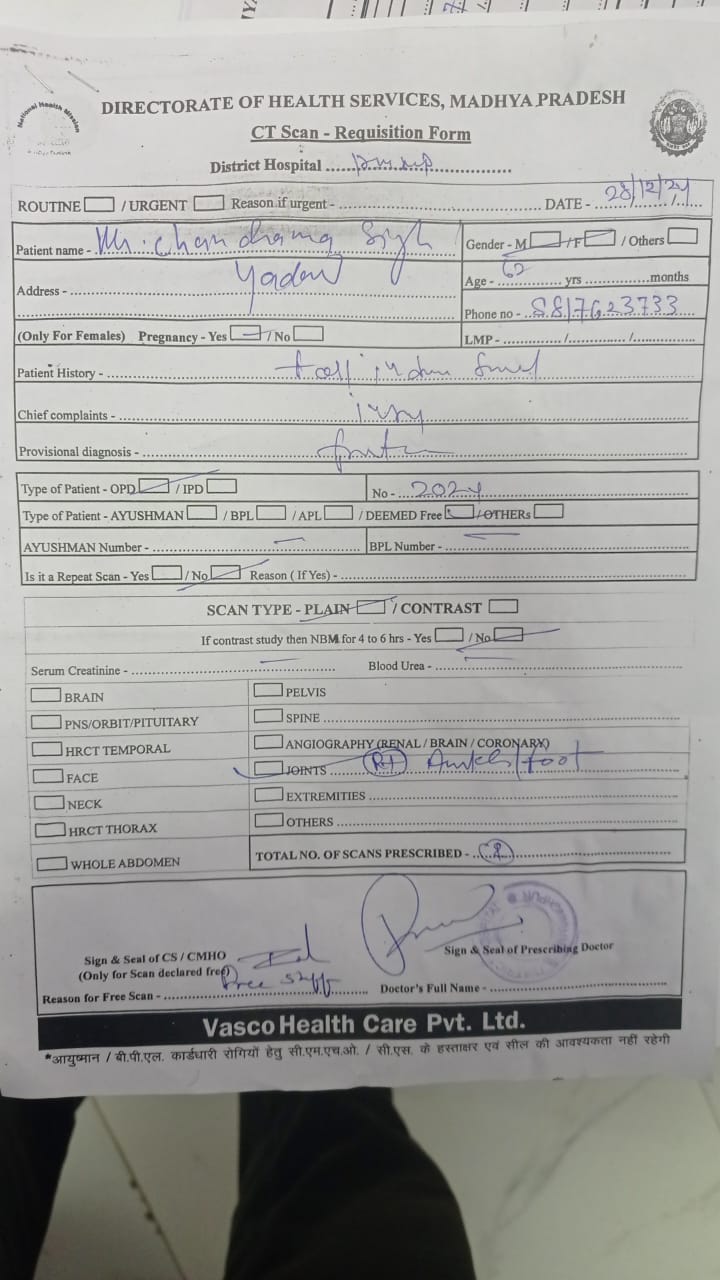 DIRECTORATE OF HEALTH SERVICES, MADHYA PRADESH
CT Scan - Requisition Form
District Hospital
ROUTINE / URGENT Reason if urgent - DATE - 28/12/24
Patient name - Mr. Chandrama Gender - M / F / Others
Address - Yadav Age - 62 yrs months
Phone no - 8817623733
(Only For Females) Pregnancy - Yes / No LMP - / /
Patient History -
Chief complaints -
Provisional diagnosis -
Type of Patient - OPD / IPD No - 2024
Type of Patient - AYUSHMAN / BPL / APL / DEEMED Free / OTHERs
AYUSHMAN Number - BPL Number -
Is it a Repeat Scan - Yes / No Reason ( If Yes) -
SCAN TYPE - PLAIN / CONTRAST
If contrast study then NBM for 4 to 6 hrs - Yes / No
Serum Creatinine - Blood Urea -
BRAIN PELVIS
PNS/ORBIT/PITUITARY SPINE
HRCT TEMPORAL ANGIOGRAPHY (RENAL / BRAIN / CORONARY)
FACE JOINTS foot
NECK EXTREMITIES
HRCT THORAX OTHERS
WHOLE ABDOMEN TOTAL NO. OF SCANS PRESCRIBED -
Sign & Seal of CS / CMHO Sign & Seal of Prescribing Doctor
(Only for Scan declared free)
Reason for Free Scan - Free Doctor's Full Name -
Vasco Health Care Pvt. Ltd.
*आयुष्मान / बी.पी.एल. कार्डधारी रोगियों हेतु सी.एम.एच.ओ. / सी.एस. के हस्ताक्षर एवं सील की आवश्यकता नहीं रहेगी